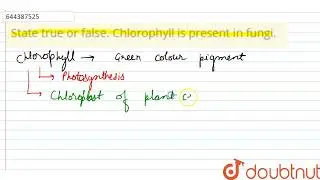 644387525
State true or false. Chlorophyll is present in fungi.
Chlorophyll → Green colour pigment
→ Photosynthesis
→ Chloroplast of plant c
doubtnut